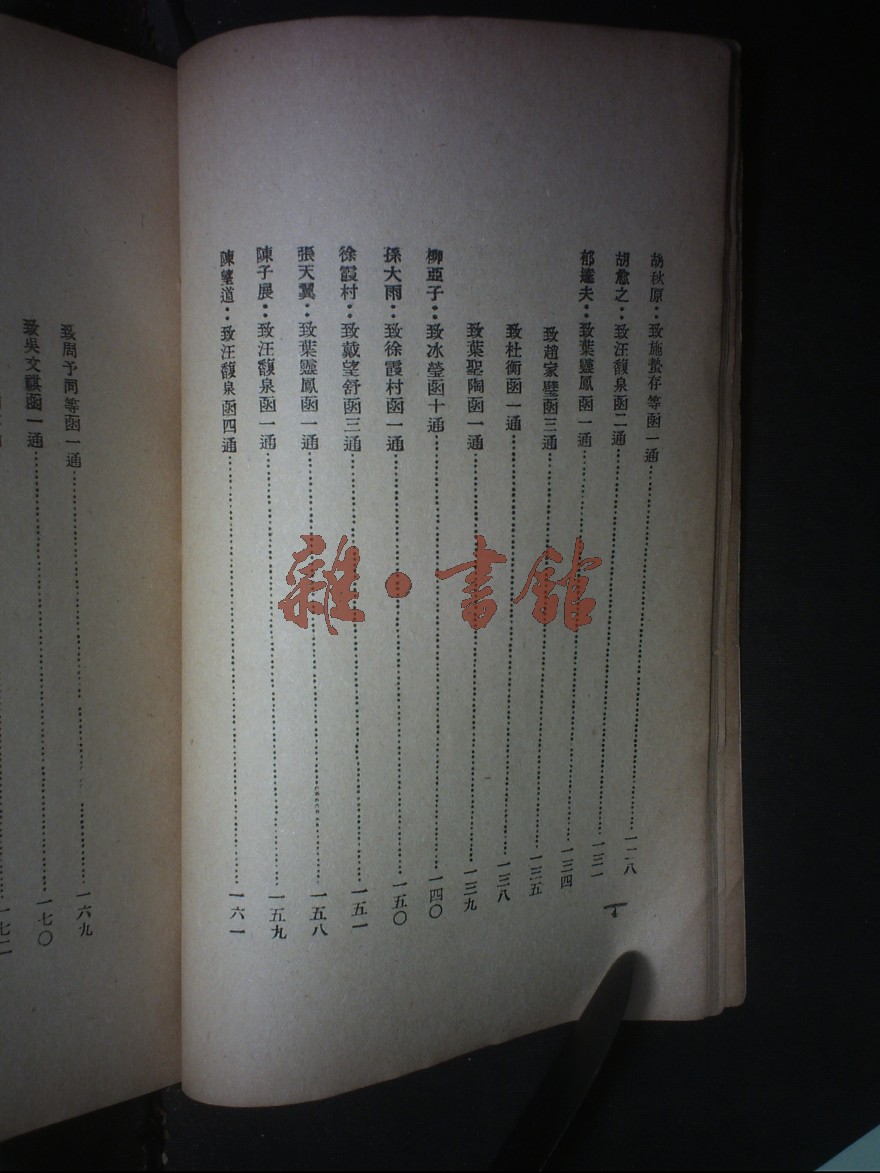 胡秋原：致施蟄存等函一通……一二八
胡愈之：致汪馥泉函二通……一三一
郁達夫：致葉靈鳳函一通……一三四
致趙家璧函三通……一三五
致杜衡函一通……一三八
致葉聖陶函一通……一三九
柳亞子：致冰瑩函十通……一四〇
孫大雨：致徐霞村函一通……一五〇
徐霞村：致戴望舒函三通……一五一
張天翼：致葉靈鳳函一通……一五八
陳子展：致汪馥泉函一通……一五九
陳望道：致汪馥泉函四通……一六一
致周予同等函一通……一六九
致吳文祺函一通……一七〇
雜·書館